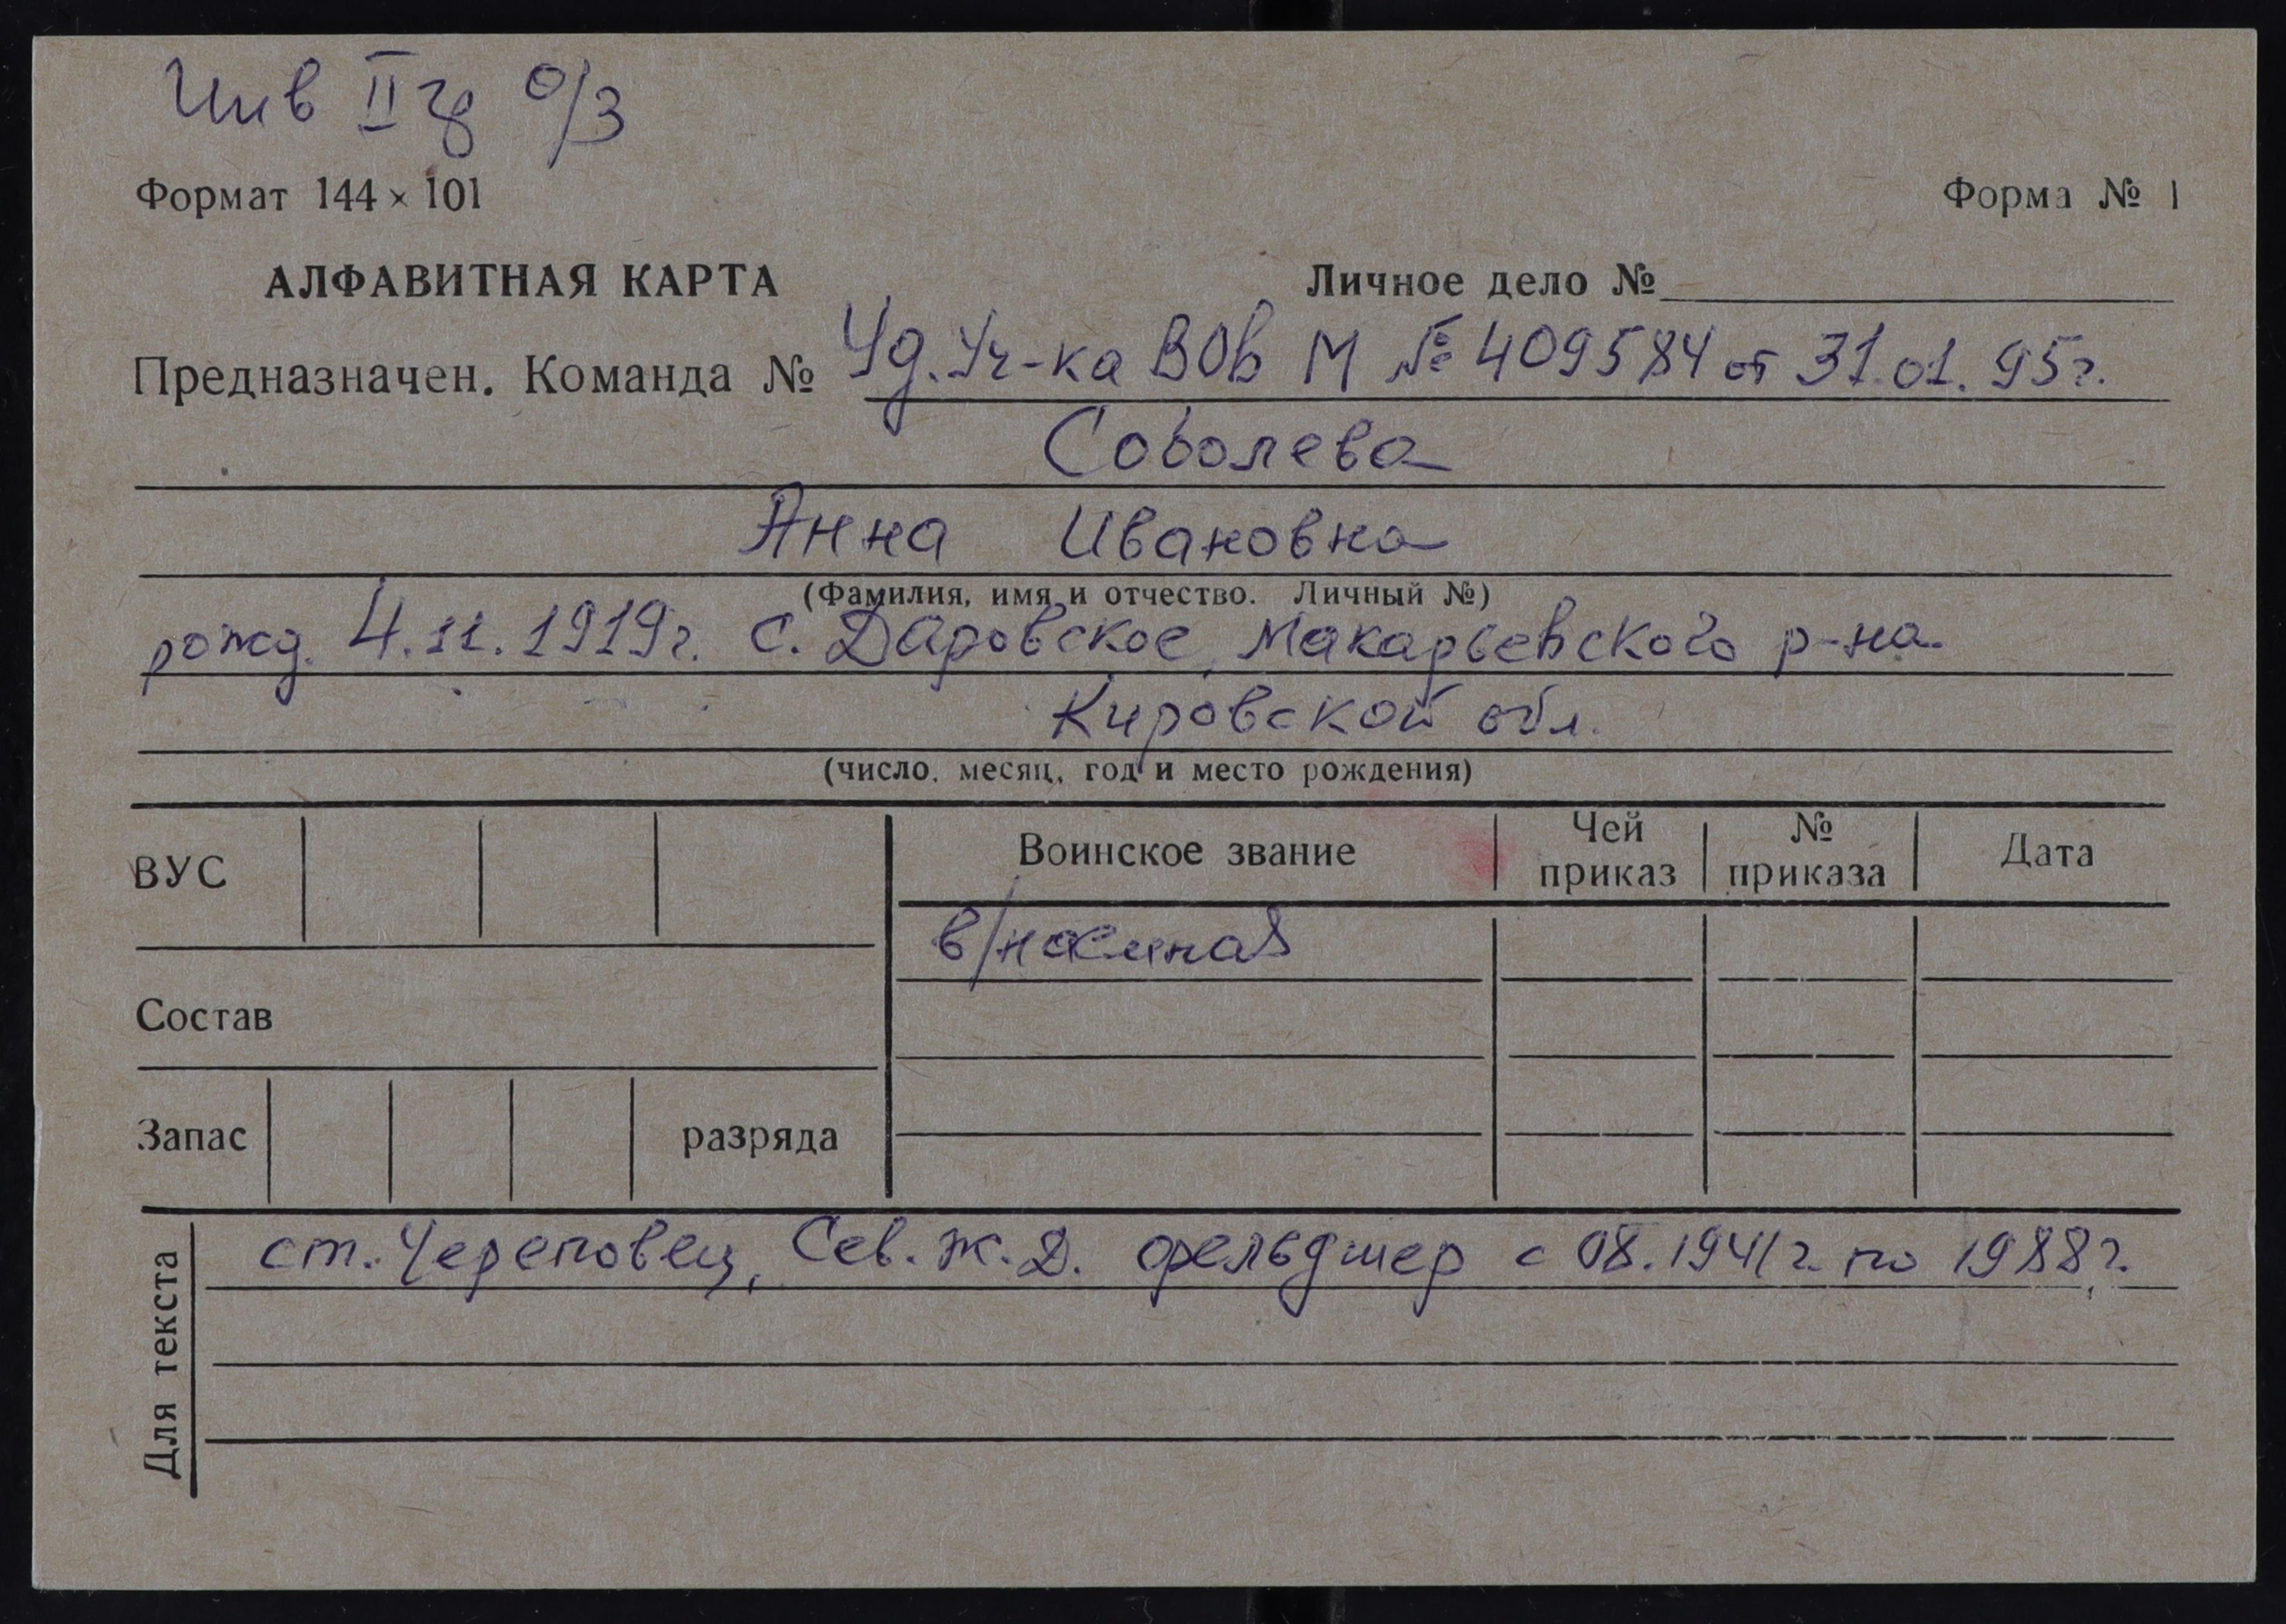 Инв II гр О/З
Формат 144 × 101
Форма № 1
АЛФАВИТНАЯ КАРТА
Личное дело №
Предназначен. Команда № Уд. Уч-ка ВОв М № 409584 от 31.01.95г.
Соболева
Анна Ивановна
(Фамилия, имя и отчество. Личный №)
рожд. 4.11.1919г. с. Даровское, Макарьевского р-на
Кировской обл.
(число, месяц, год и место рождения)
ВУС
Воинское звание
Чей приказ
№ приказа
Дата
в/наемная
Состав
Запас
разряда
Для текста
ст. Череповец, Сев. Ж.Д. фельдшер с 08.1941г. по 1988г.